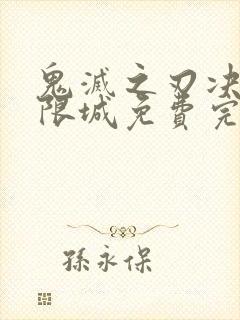 鬼滅之刃决
限城免費完
孫永保